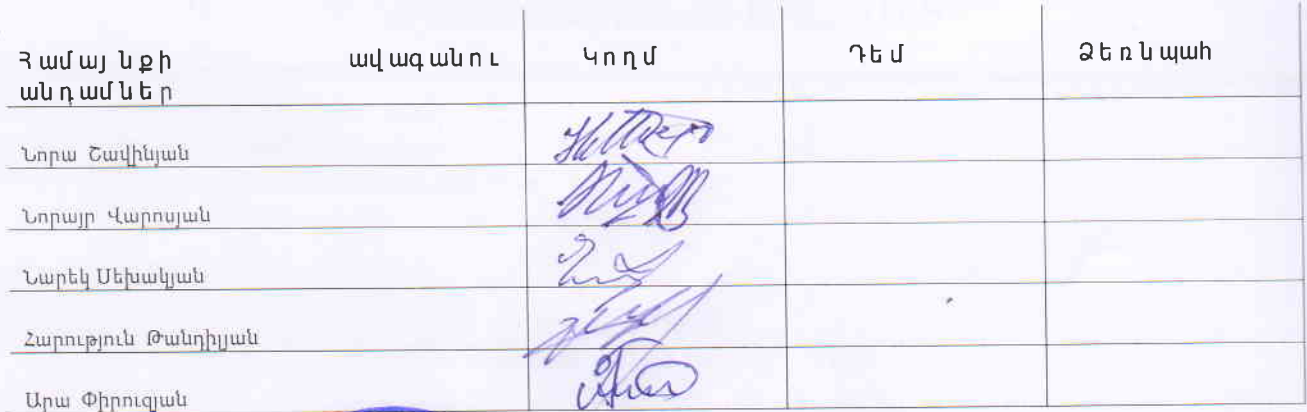 Համայնքի ավագանու Կողմ Դեմ Ձեռնպահ
անդամներ
Նորա Շավինյան
Նորայր Վարոսյան
Նարեկ Սեխակյան
Հարություն Թանդիլյան
Արա Փիրուզյան